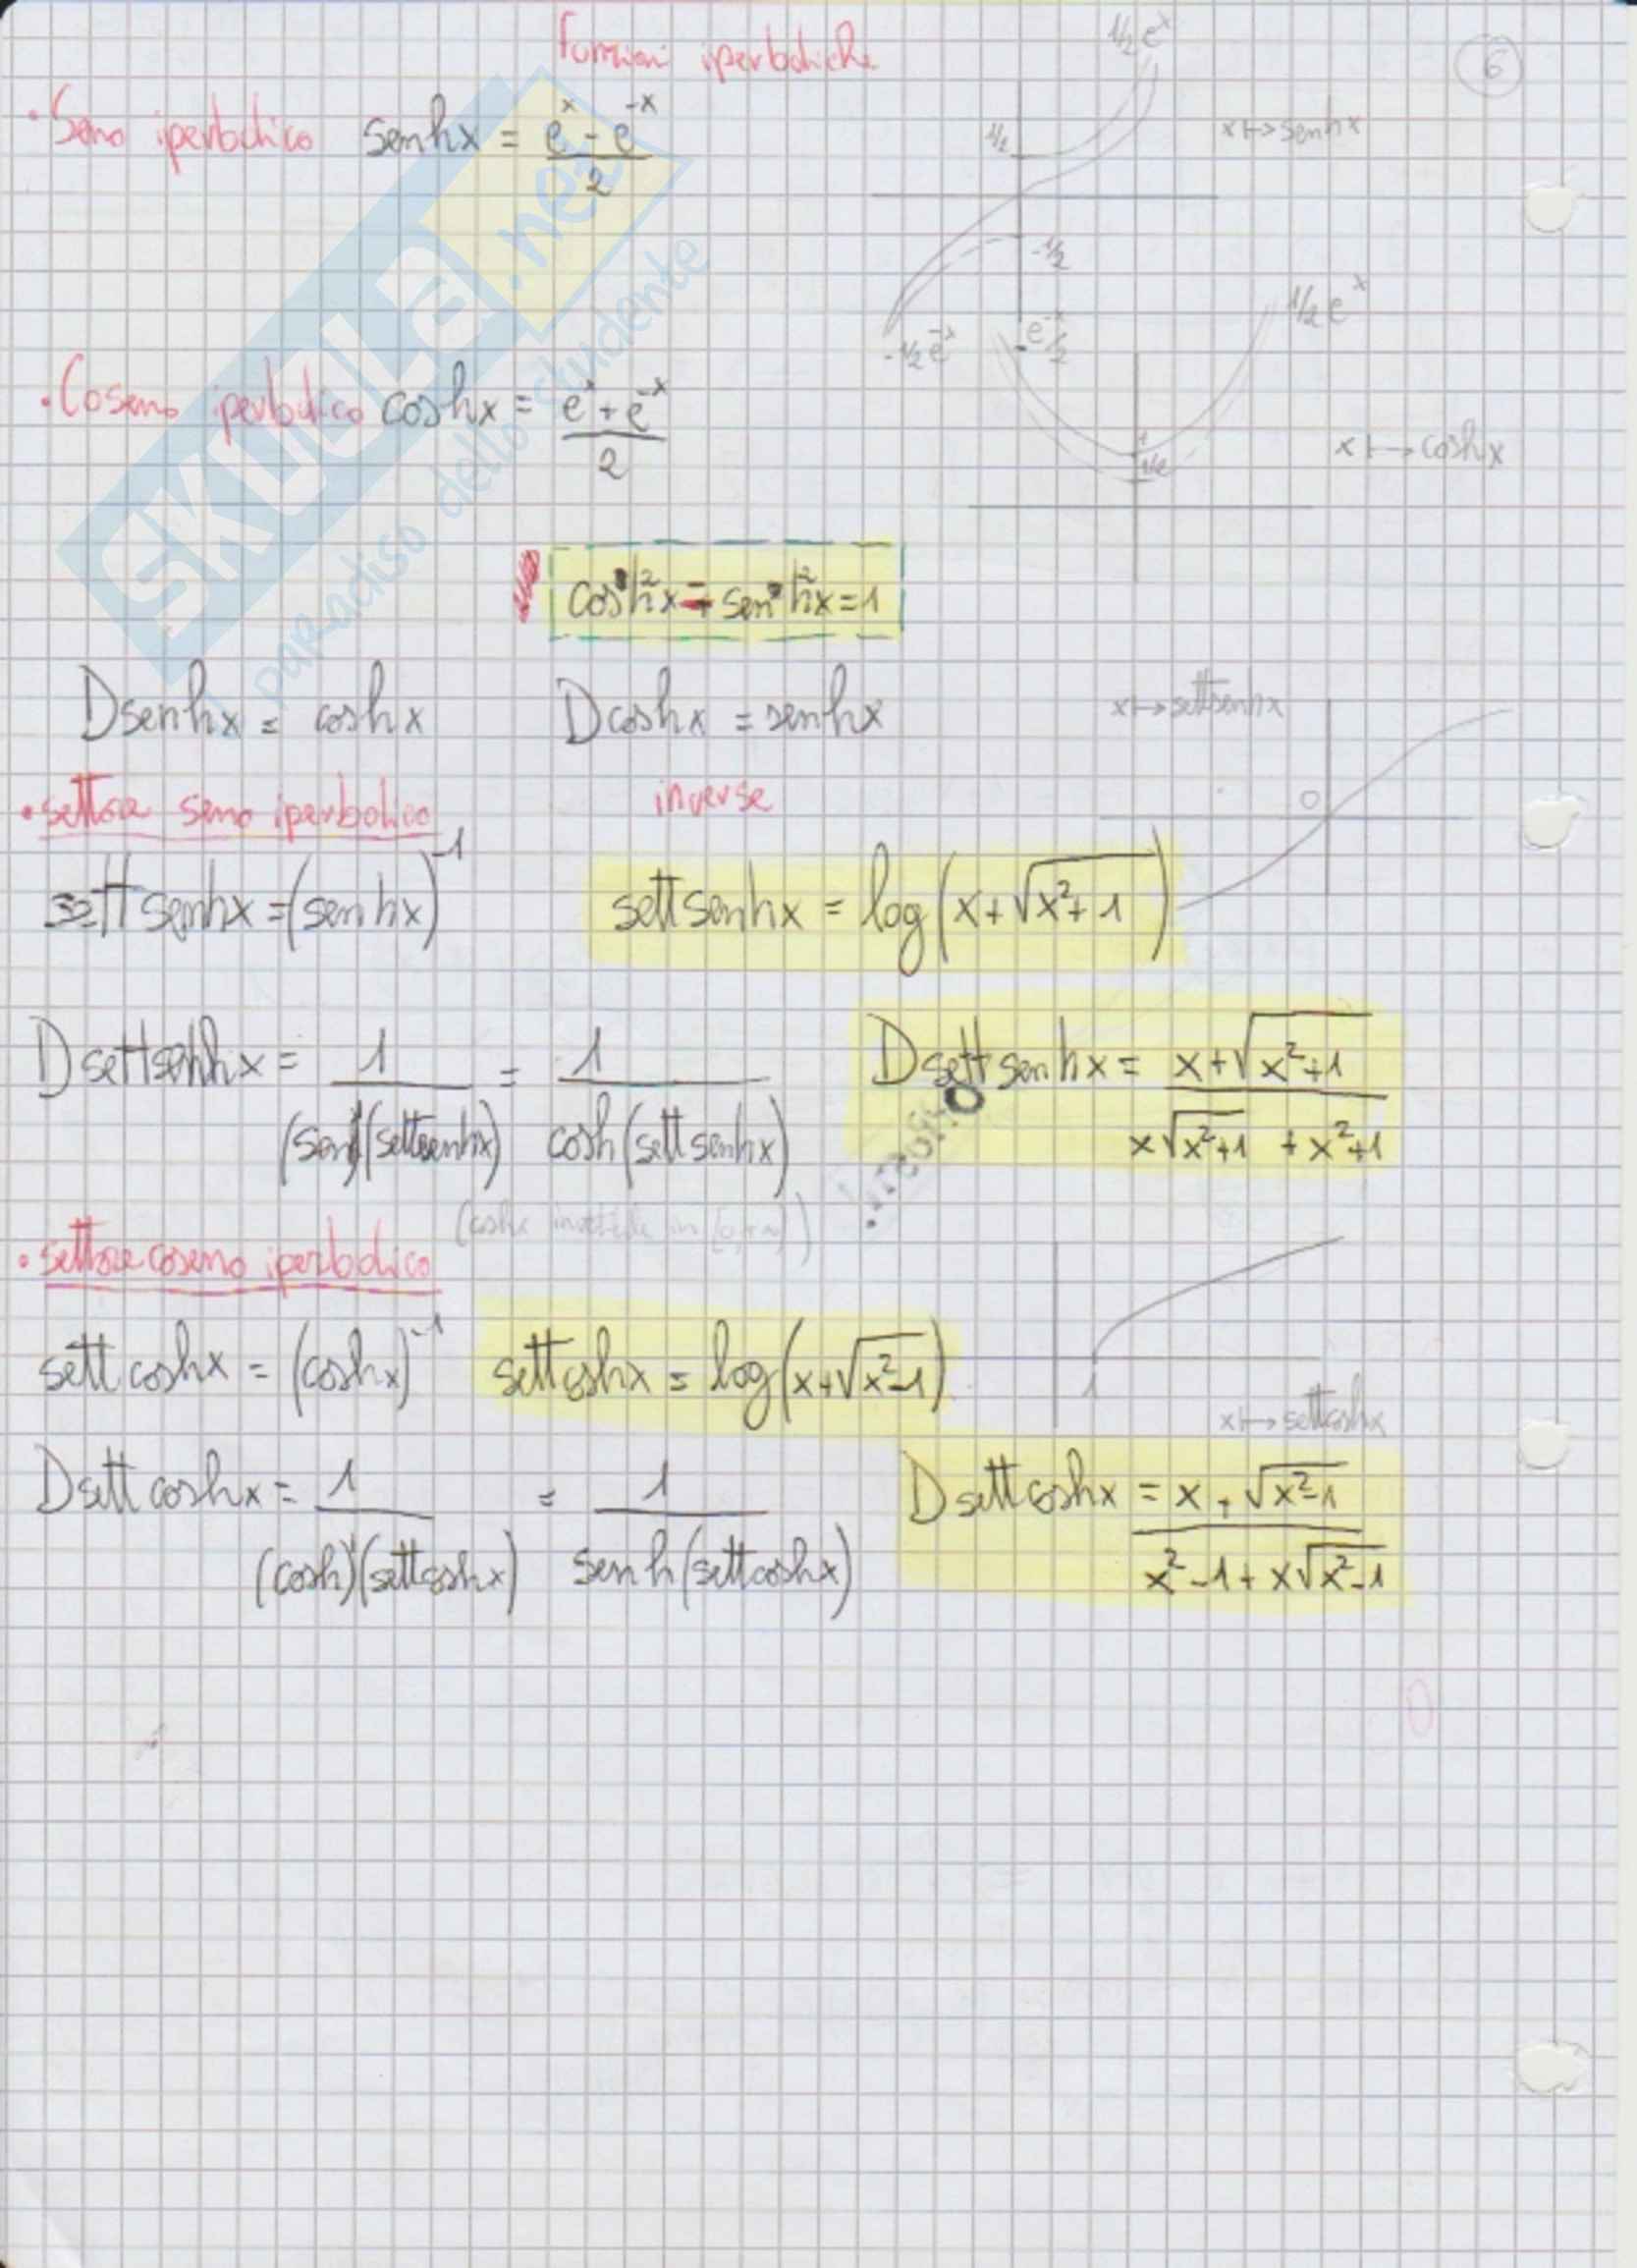 Funzioni iperboliche
6
• Seno iperbolico senhx = (e^x - e^-x)/2
1/2 e^x
1/2
x ↦ senhx
-1/2
-1/2 e^-x
SKUOLA.net
paradiso dello studente
• Coseno iperbolico coshx = (e^x + e^-x)/2
e^-x/2
1/2 e^x
1
1/2
x ↦ coshx
cosh²x - senh²x = 1
Dsenhx = coshx Dcoshx = senhx
x ↦ settsenhx
0
• settore seno iperbolico
inverse
settsenhx = (senhx)^-1 settsenhx = log(x+√(x²+1))
Dsettsenhx = 1/((senh)'(settsenhx)) = 1/(cosh(settsenhx)) Dsettsenhx = (x+√(x²+1))/(x√(x²+1) + x²+1)
(coshx invertibile in [0,+∞))
• settore coseno iperbolico
settcoshx = (coshx)^-1 settcoshx = log(x+√(x²-1))
1
x ↦ settcoshx
Dsettcoshx = 1/((cosh)'(settcoshx)) = 1/(senh(settcoshx)) Dsettcoshx = (x+√(x²-1))/(x²-1+x√(x²-1))